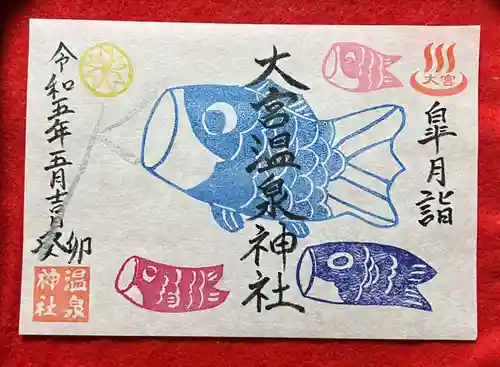 大宮
皐月詣
大宮温泉神社
令和五年五月吉日
癸卯
温泉
神社